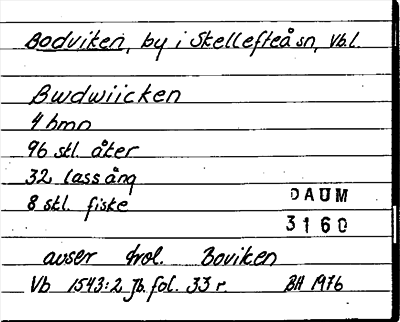 Bodviken, by i Skellefteå sn, Vb.l.
Bwdwiicken
4 bmn
96 stl. åker
32 lass äng
8 stl. fiske
DAUM
3160
avser trol. Boviken
Vb 1543:2 Jb. fol. 33 r. BH 1976